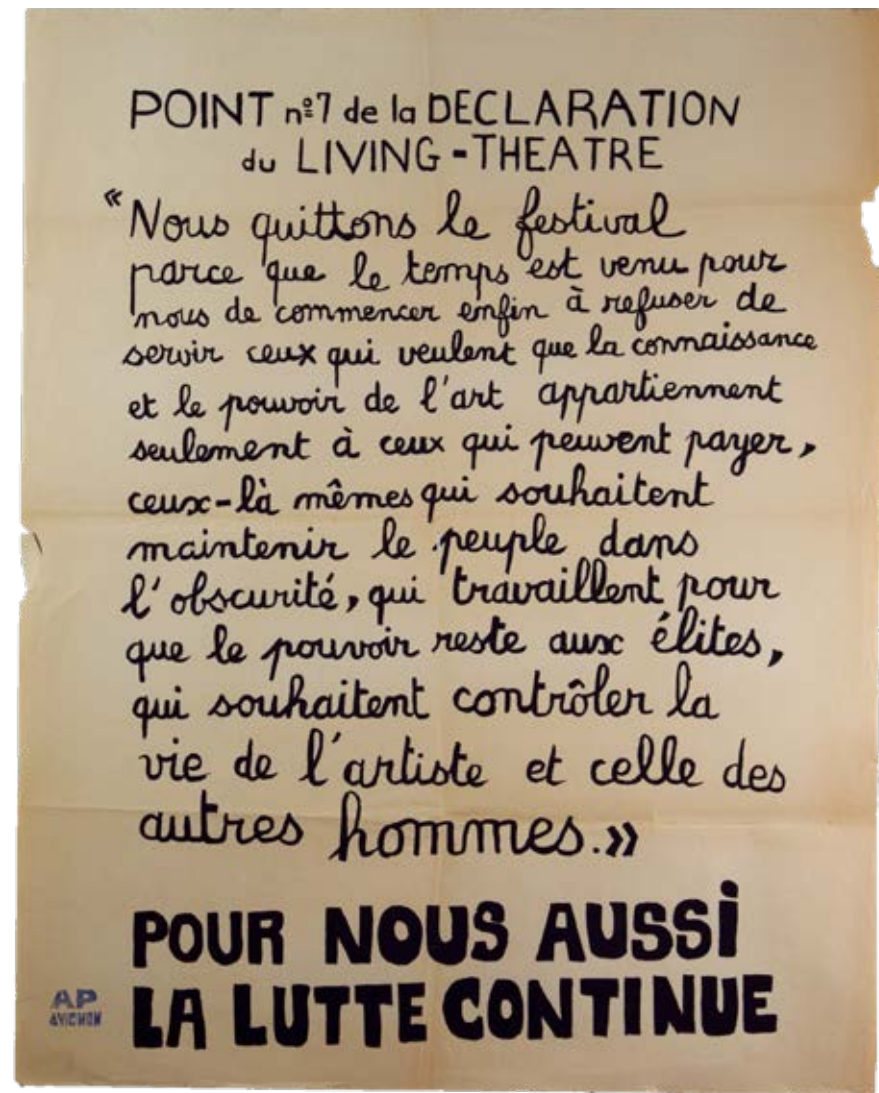 POINT nº7 de la DECLARATION
du LIVING-THEATRE
"Nous quittons le festival
parce que le temps est venu pour
nous de commencer enfin à refuser de
servir ceux qui veulent que la connaissance
et le pouvoir de l'art appartiennent
seulement à ceux qui peuvent payer,
ceux-là mêmes qui souhaitent
maintenir le peuple dans
l'obscurité, qui travaillent pour
que le pouvoir reste aux élites,
qui souhaitent contrôler la
vie de l'artiste et celle des
autres hommes.»
POUR NOUS AUSSi
LA LUTTE CONTINUE
AP
AVIGNON